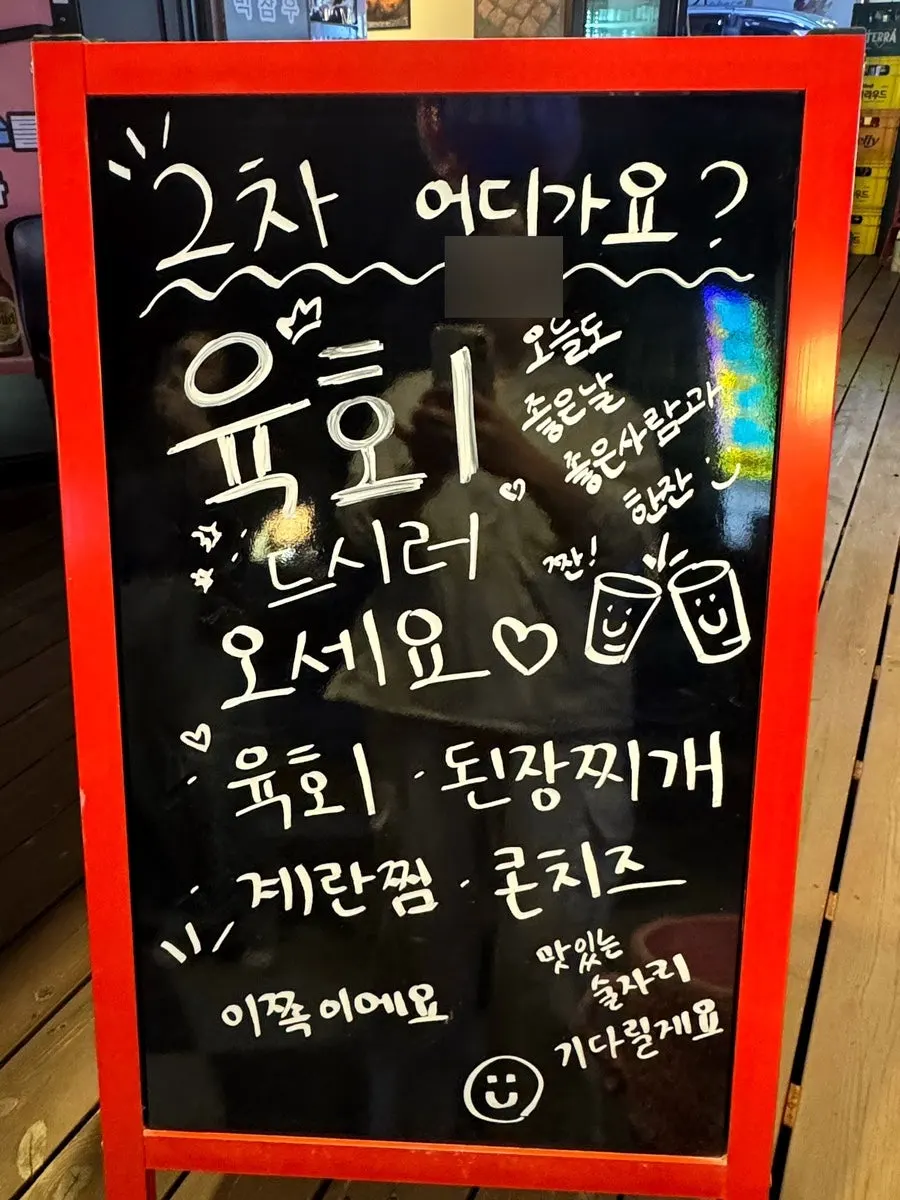 2차 어디가요?
육회
드시러
오세요♡
오늘도
좋은날
좋은사람과
한잔
짠!
육회 · 된장찌개
계란찜 · 콘치즈
이쪽이에요
맛있는
술자리
기다릴게요
TERRA